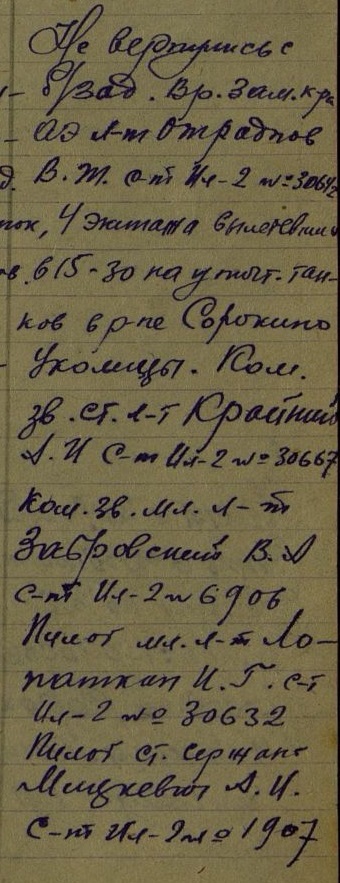 Не вернулись с
б/зад. Вр. Зам. кра
АЭ л-т Отраднов
В. Т. с-т Ил-2 №30642
ток, 4 экипажа вылетевши
в 15-30 на уничт. тан-
ков в р-не Сорокино
Уколицы. Ком.
зв. ст. л-т Крайний
А. И с-т Ил-2 №30667
Ком. зв. мл. л-т
Забровский В. А
с-т Ил-2 № 6906
Пилот мл. л-т Ло-
паткан И. Г. с-т
Ил-2 № 30632
Пилот ст. сержант
Мицкевич А. И.
С-т Ил-2 № 1907